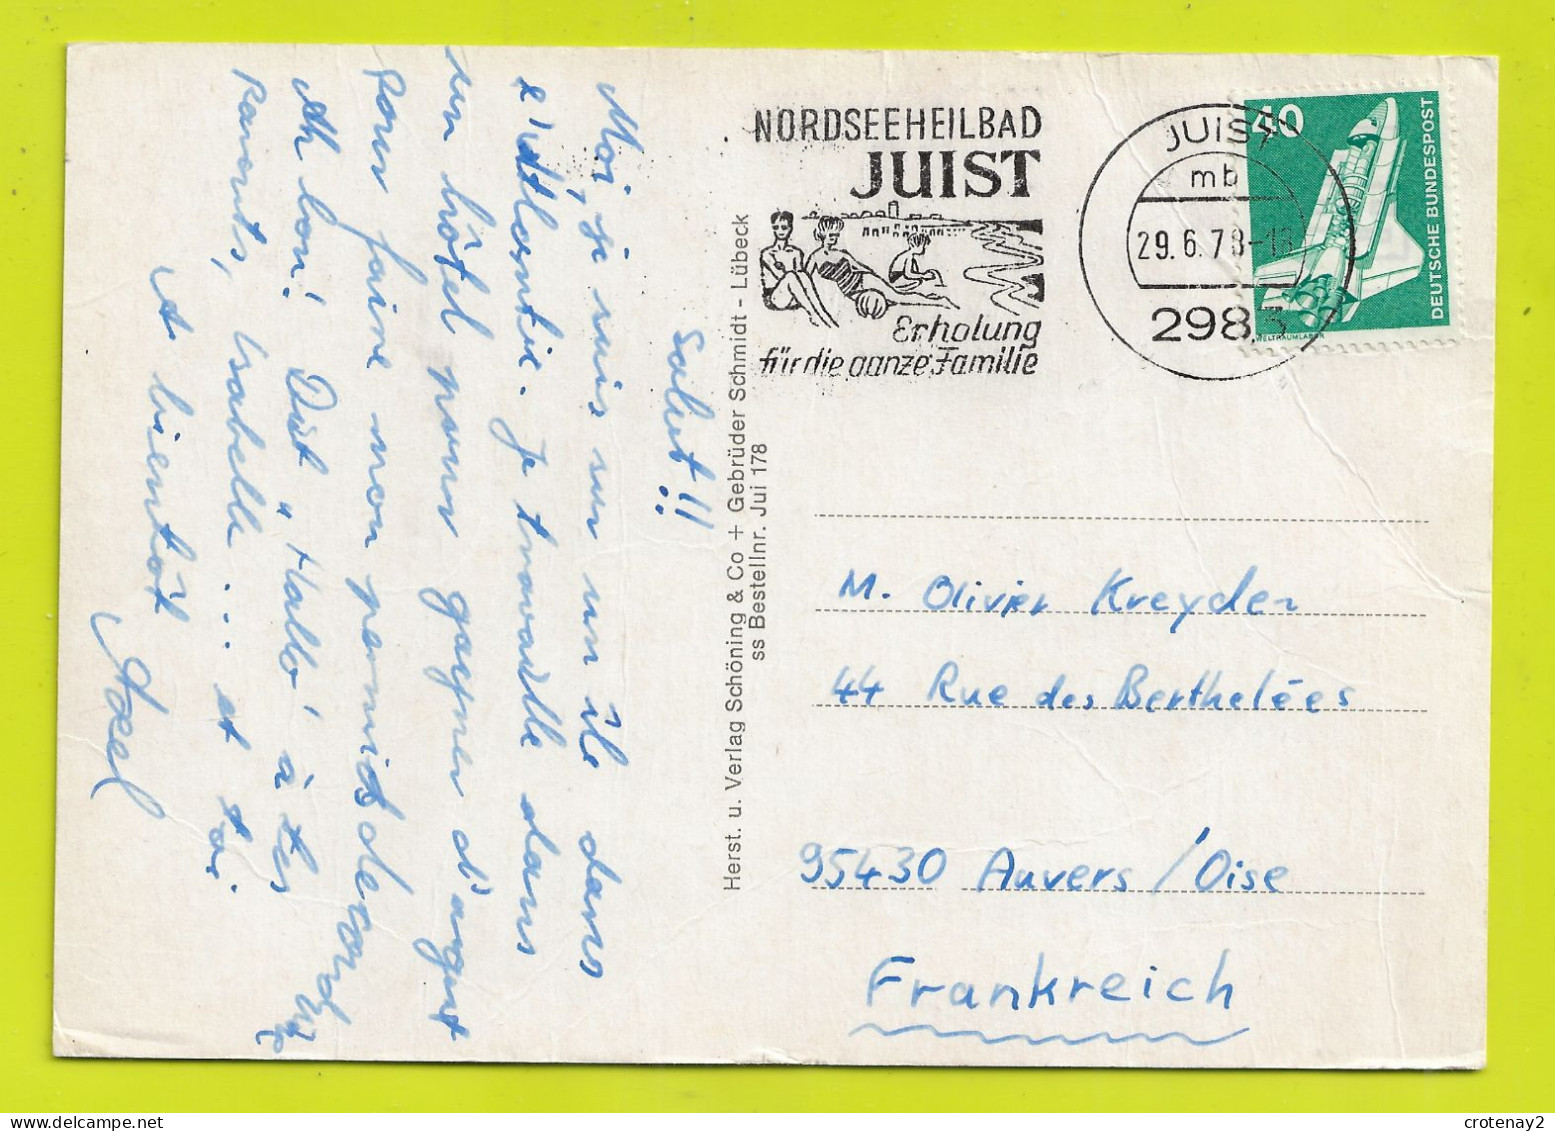 Salut !!
Moi, je suis sur un île dans
l'Atlantic. Je travaille dans
un hôtel pour gagner d'argent
pour faire mon permis de conduire
Ah bon! Dit "Hallo" à tes
parents, Isabelle ... et toi
A bientôt
Axel
Herst. u. Verlag Schöning & Co + Gebrüder Schmidt - Lübeck
ss Bestellnr. Jui 178
NORDSEEHEILBAD
JUIST
Erholung
für die ganze Familie
JUIST
mb
29.6.78-18
2983
40
DEUTSCHE BUNDESPOST
WELTRAUMLABOR
M. Olivier Kreyder
44 Rue des Berthelées
95430 Auvers / Oise
Frankreich
crotenay2